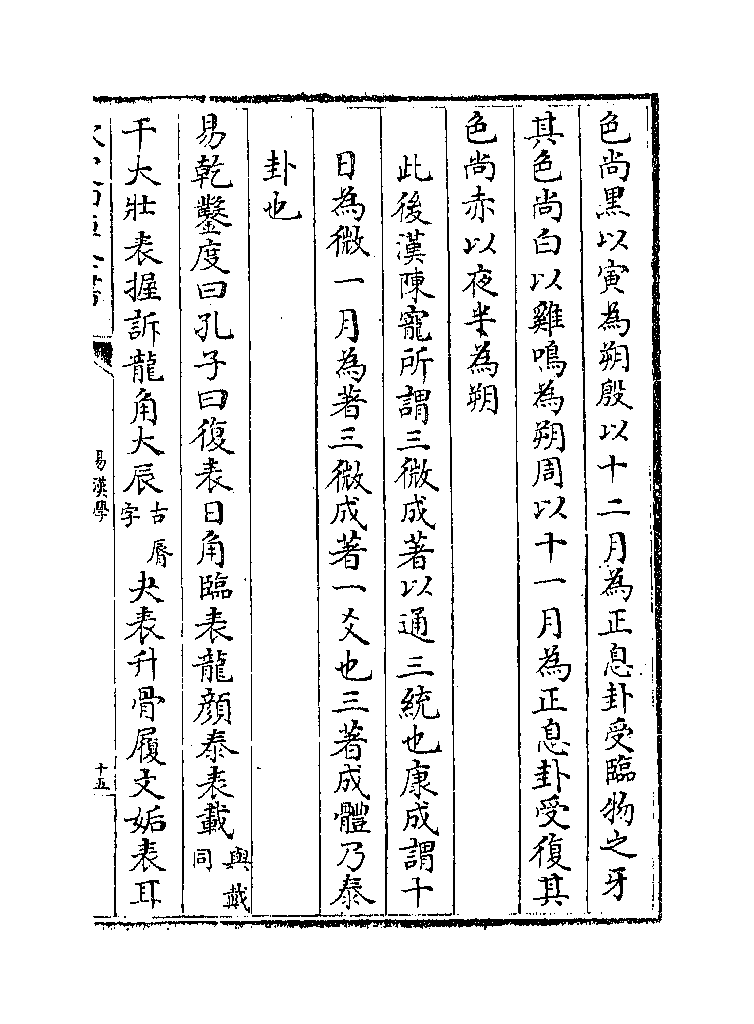 色尚黑以寅為朔殷以十二月為正息卦受臨物之牙
其色尚白以雞鳴為朔周以十一月為正息卦受復其
色尚赤以夜半為朔
此後漢陳寵所謂三微成著以通三統也康成謂十
日為微一月為著三微成著一爻也三著成體乃泰
卦也
易乾鑿度曰孔子曰復表日角臨表龍顔泰表載與戴同
干大壯表握訴龍角大辰古脣字夬表升骨履文姤表耳
易漢學
十五